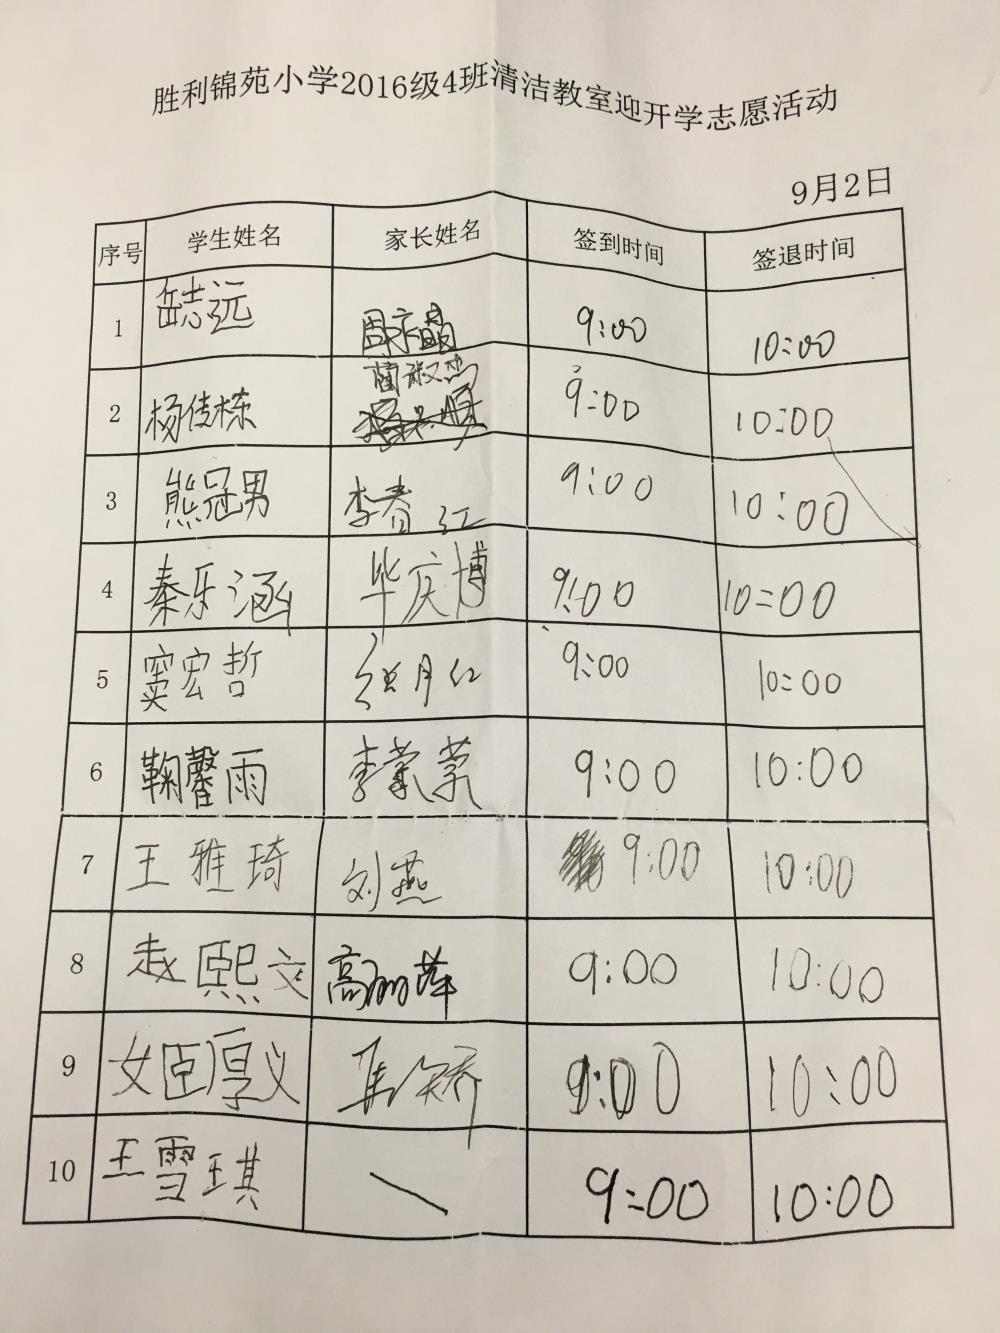 胜利锦苑小学2016级4班清洁教室迎开学志愿活动
9月2日
序号 学生姓名 家长姓名 签到时间 签退时间
1 岳志远 9:00 10:00
2 杨佳栋 蔺淑杰 9:00 10:00
3 熊冠男 李春江 9:00 10:00
4 秦乐涵 毕庆博 9:00 10:00
5 窦宏哲 9:00 10:00
6 鞠馨雨 李荣荣 9:00 10:00
7 王雅琦 刘燕 9:00 10:00
8 赵熙文 高丽萍 9:00 10:00
9 9:00 10:00
10 王雪琪 \ 9:00 10:00